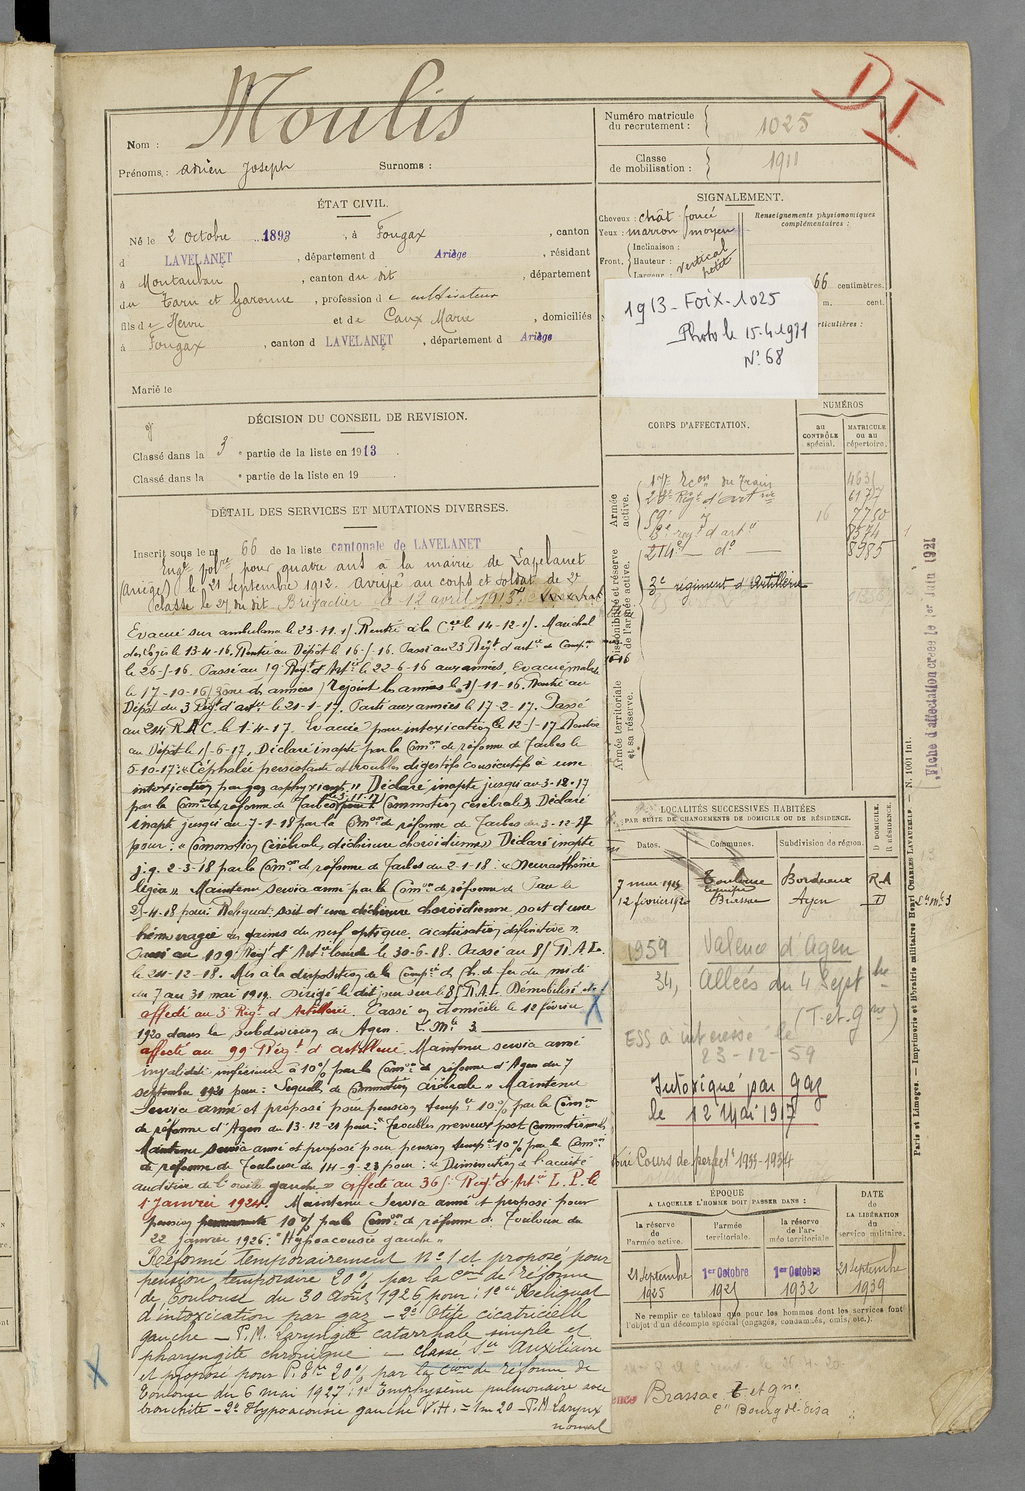 Moulis
Nom :
Prénoms : Adrien Joseph Surnoms :
ÉTAT CIVIL.
Né le 2 octobre 1893, à Fougax, canton
d LAVELANET, département d Ariège, résidant
à Montauban, canton du dit, département
du Tarn et Garonne, profession de cultivateur
fils de Henri et de Caux Marie, domiciliés
à Fougax, canton d LAVELANET, département d Ariège
Marié le
DÉCISION DU CONSEIL DE REVISION.
Classé dans la 3e partie de la liste en 1913.
Classé dans la e partie de la liste en 19 .
DÉTAIL DES SERVICES ET MUTATIONS DIVERSES.
Inscrit sous le no 66 de la liste cantonale de LAVELANET
Engé volre pour quatre ans à la mairie de Lavelanet
(Ariège) le 21 septembre 1912. Arrivé au corps et soldat de 2e
classe le 27 du dit. Brigadier le 12 avril 1913.
Evacué sur ambulance le 23-11-15 Rentré à la Cie le 14-12-15. Maréchal
des Logis le 13-4-16. Rentré au Dépôt le 16-5-16. Passé au 23 Régt d'artie de Campne
le 26-5-16. Passé au 19 Régt d'Artie le 22-6-16 aux armées. Evacué malade
le 17-10-16 (zone des armées) Rejoint les armées le 15-11-16. Rentré au
Dépôt du 3 Régt d'artie le 21-1-17. Parti aux armées le 17-2-17. Passé
au 214 R.A.C. le 1-4-17. Evacué pour intoxication le 12-5-17 Rentré
au Dépôt le 15-6-17. Déclaré inapte par la Comon de réforme de Tarbes le
5-10-17 : "Céphalée persistante et troubles digestifs consécutifs à une
intoxication par gaz asphyxiants" Déclaré inapte jusqu'au 3-12-17
par la Comon de réforme de Tarbes pour : "Commotion cérébrale" Déclaré
inapte jusqu'au 7-1-18 par la Comon de réforme de Tarbes du 3-12-17
pour : "Commotion Cérébrale, déchirure choroïdienne" Déclaré inapte
j.q. 2-3-18 par la Comon de réforme de Tarbes du 2-1-18 : "Neurasthénie
légère" Maintenu service armé par la Comon de réforme de Pau le
25-4-18 pour : Reliquat soit d'une déchirure choroïdienne soit d'une
hémorragie des gaines du nerf optique. cicatrisation définitive".
Passé au 109 Régt d'Artie lourde le 30-6-18. Passé au 85 R.A.L.
le 24-12-18. Mis à la disposition de la Compie de Ch. de fer du midi
du 7 au 31 mai 1919. Dirigé le dit jour sur le 85 R.A.L. Démobilisé et
affecté au 3e Régt d'Artillerie. Passé en domicile le 12 février
1920 dans la subdivision de Agen. L. Mle 3.
affecté au 99 Régt d'artillerie. Maintenu service armé
invalidité inférieure à 10% par la Comon de réforme d'Agen du 7
septembre 1921 pour : Sequelles de Commotion cérébrale" Maintenu
Service armé et proposé pour pension tempre 10% par la Comon
de réforme d'Agen du 13-12-21 pour : Troubles nerveux post commotionnels
Maintenu service armé et proposé pour pension tempre 10% par la Comon
de réforme de Toulouse du 14-9-23 pour : "Diminution de l'acuité
auditive de l'oreille gauche" affecté au 36e Régt d'Artie L. P. le
1 Janvier 1924. Maintenu Service armé et proposé pour
pension permanente 10% par la Comon de réforme de Toulouse du
22 Janvier 1926 : "Hypoacousie gauche"
Réformé temporairement No 1 et proposé pour
pension temporaire 20% par la Con de réforme
de Toulouse du 30 Août 1926 pour : 1o Reliquat
d'intoxication par gaz - 2o Otite cicatricielle
gauche - P.M. Laryngite catarrhale simple et
pharyngite chronique - classé Sce Auxiliaire
et proposé pour P. 20% par la Cion de réforme de
Toulouse du 6 mai 1927 : 1o Emphysème pulmonaire avec
bronchite - 2o Hypoacousie gauche V.H. = 1m 20 - P.M Larynx
normal
Numéro matricule
du recrutement : 1025
Classe
de mobilisation : 1911
D.I
SIGNALEMENT.
Cheveux : chât foncé
Yeux : marron moyen
Front, Inclinaison : vertical
Hauteur : petit
Largeur :
Renseignements physionomiques
complémentaires :
66 centimètres.
m. cent.
1913 - Foix - 1025
Photo le 15.4.1991
No 68
CORPS D'AFFECTATION.
NUMÉROS
au
CONTRÔLE
spécial.
MATRICULE
ou au
répertoire.
Armée
active.
17e Econ du Train
23e Régt d'Artie
214e do
8985
3e régiment d'Artillerie
Disponibilité et réserve
de l'armée active.
Armée territoriale
et sa réserve.
LOCALITÉS SUCCESSIVES HABITÉES
PAR SUITE DE CHANGEMENTS DE DOMICILE OU DE RÉSIDENCE.
Dates. Communes. Subdivision de région. D DOMICILE. R RÉSIDENCE.
7 mai 1915 Toulouse Bordeaux R.A
12 février 1920 Agen D
1959 Valence d'Agen
34, Allées du 4 Septbre
(T-et-Gne)
ESS à intéressé le
23-12-59
Intoxiqué par gaz
le 12 Mai 1917
Cours de perfect 1933-1934
ÉPOQUE
A LAQUELLE L'HOMME DOIT PASSER DANS :
la réserve
de
l'armée active.
l'armée
territoriale.
la réserve
de l'ar-
mée territoriale
DATE
de
LA LIBÉRATION
du
service militaire.
21 Septembre 1925
1er Octobre 1927
1er Octobre 1932
21 Septembre 1939
Ne remplir ce tableau que pour les hommes dont les services font
l'objet d'un décompte spécial (engagés, condamnés, omis, etc.).
Brassac T. et Gne
Cn Bourg de Visa
Fiche d'affectation créée le 1er Juin 1921
Paris et Limoges. — Imprimerie et librairie militaires Henri CHARLES-LAVAUZELLE. — N. 1001 Int.